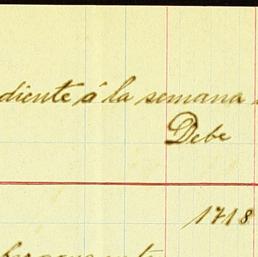 diente á la semana
Debe
1718